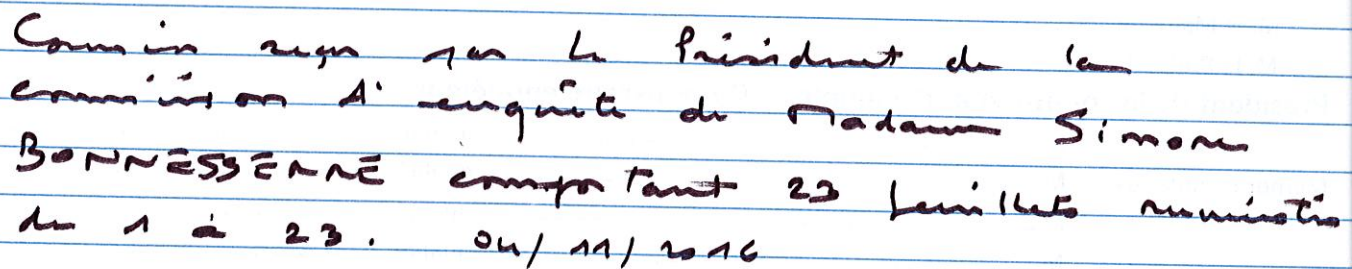 Courrier reçu par le Président de la
commission d'enquête de Madame Simone
BONNESSERRE comportant 23 feuillets numérotés
de 1 à 23. 04/11/2016